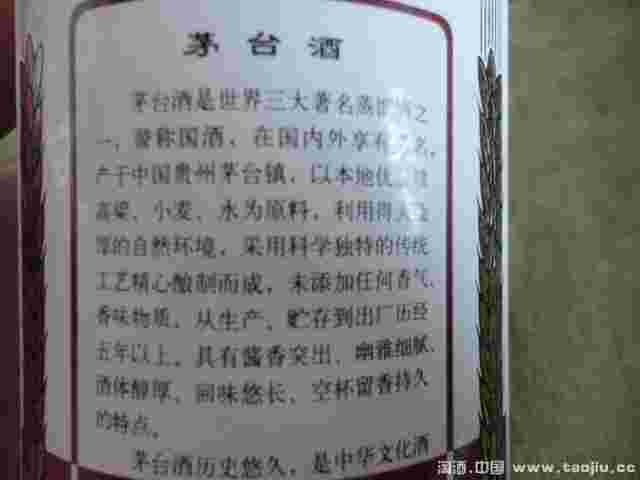 茅台酒
茅台酒是世界三大著名蒸馏酒之
一，誉称国酒，在国内外享有名，
产于中国贵州茅台镇，以本地优
高粱、小麦、水为原料，利用得天
厚的自然环境，采用科学独特的传统
工艺精心酿制而成，未添加任何香气、
香味物质。从生产、贮存到出厂历经
五年以上。具有酱香突出、幽雅细腻、
酒体醇厚、回味悠长、空杯留香持久
的特点。
茅台酒历史悠久，是中华文化酒
淘酒.中国 www.taojiu.cc